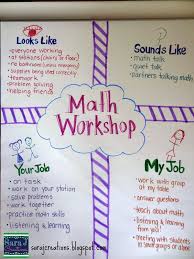 Looks Like
• everyone working
• at stations (chairs or floor)
• no bathroom
• supplies being used correctly
• teamwork
• problem solving
• helping friends
Sounds Like
• math talk
• quiet talk
• partners talking math
Math
Workshop
Your Job
• on task
• work on your station
• solve problems
• work together
• practice math skills
• listening & learning
My Job
• work with group
at my table
• answer questions
• teach about math
• listening & learning
from others
• meeting with students
in small groups
sarajcreations.blogspot.com
Sara J